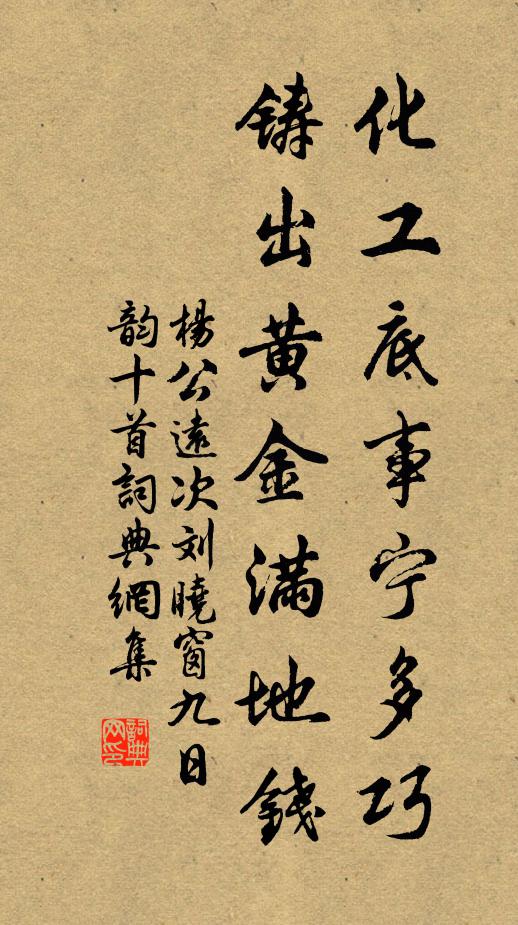 化工底事宁多巧
铸出黄金满地錢
楊公遠次刘曉窗九日
韵十首詞典網集
詞典網印